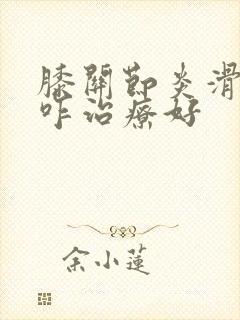 膝關節炎滑
咋治療好
余小蓮